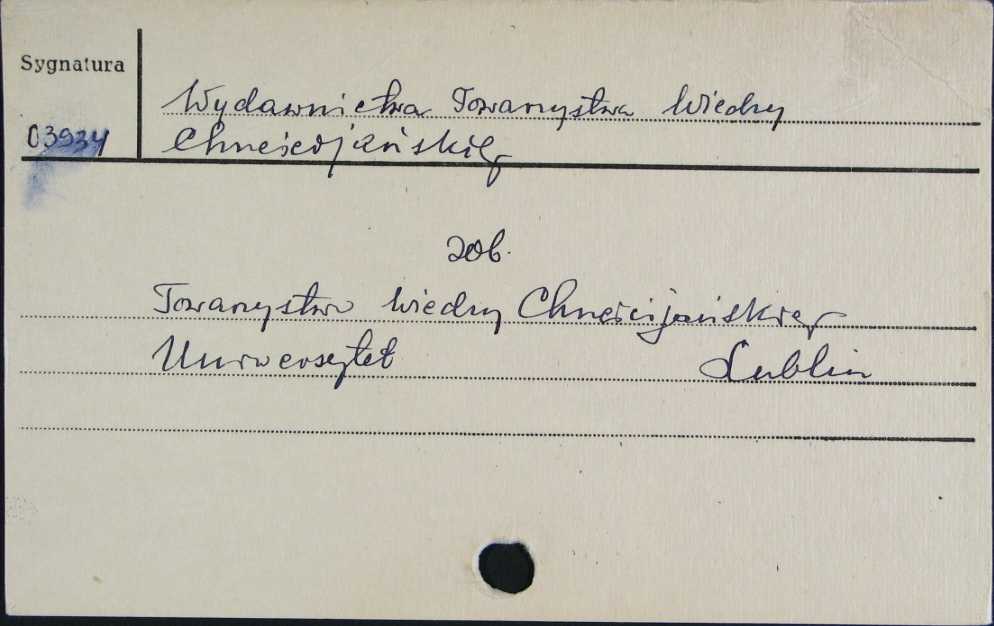 Sygnatura
03934
Wydawnictwa Towarzystwa Wiedzy
Chrześcijańskiej
zob.
Towarzystwo Wiedzy Chrześcijańskiej
Uniwersytet Lublin